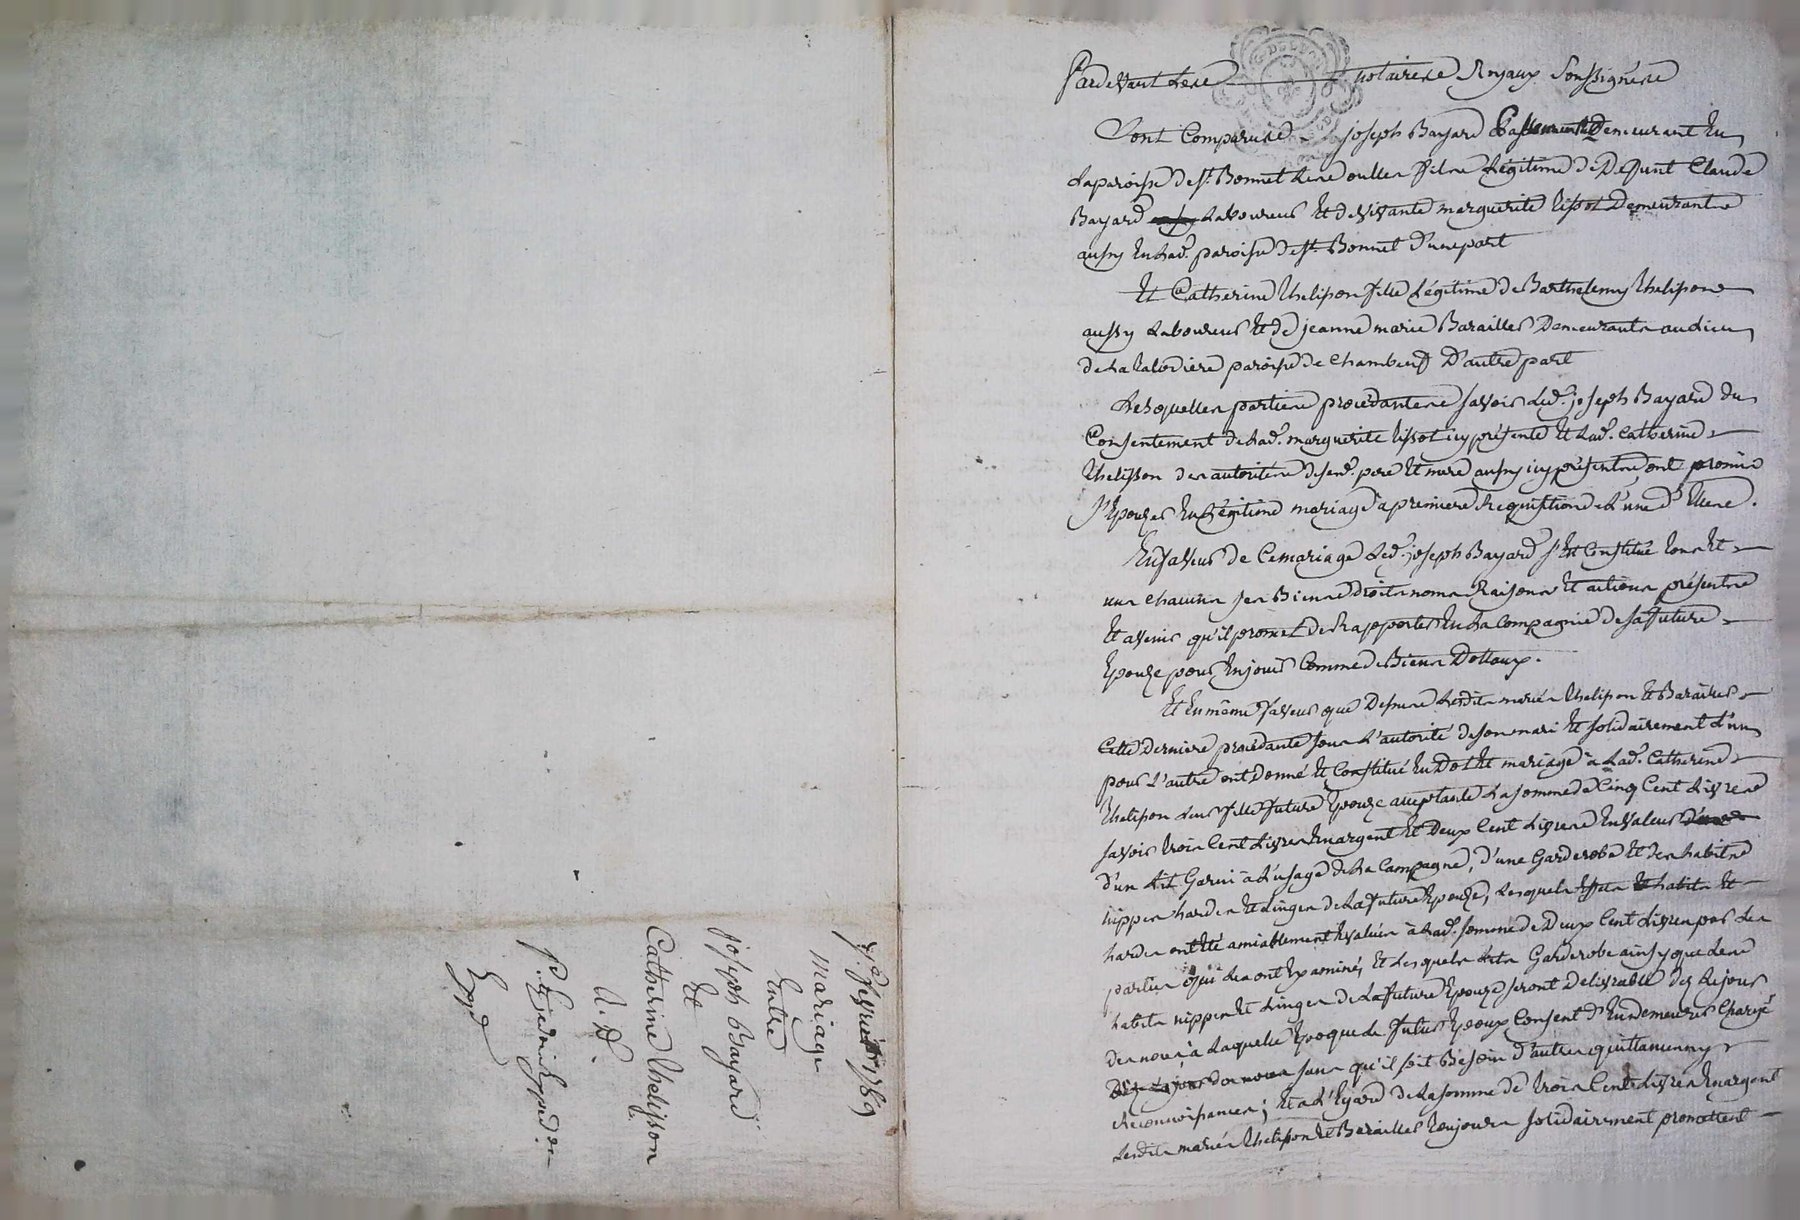 Pardevant Les notaires Royaux Soussignés
Sont Comparus joseph Bayard Demeurant En
La paroisse de St. Bonnet Les oulles fils Légitime de Defunt Claude
Bayard Laboureur Et de vivante marguerite tissot Demeurante
aussy En Lad. paroisse de St. Bonnet d'une part
Et Catherine thelisson fille Légitime de Barthelemy thelisson
aussy Laboureur Et de jeanne marie Barailler Demeurants au lieu
de La paroisse de Chambeuf D'autre part
Lesquelles parties procédantes savoir Led. joseph Bayard du
Consentement de Lad. marguerite tissot icy présente Et Lad. Catherine
thelisson des autorités de sesd. pere Et mere aussy icy présents, ont promis
s'Epouzer En Légitime mariage à premiere Requisition de L'une d'Elles.
En faveur de Ce mariage Led. joseph Bayard s'Est Constitué tous Et
uns chacuns ses Biens droits noms Raisons Et actions présents
Et avenir qu'il promet de Rapporter En La Compagnie de sa future
Epouze pour En jouir Comme de Biens Dottaux.
Et En même faveur que Dessus Lesdits mariés thelisson Et Barailler
Cette derniere procédante sous L'autorité de son mari Et solidairement L'un
pour L'autre ont donné Et Constitué En Dot Et mariage à Lad. Catherine
thelisson Leur fille future Epouze acceptante La somme de Cinq Cent Livres
savoir trois Cent Livres En argent Et Deux Cent Livres En valeur
d'un Lit Garni à L'usage de La Campagne, d'une Garderobe Et des habits
nippes hardes Et Linges de La future Epouze, Lesquels Effets Et habits Et
hardes ont Eté amiablement Evalués à Lad. somme de Deux Cent Livres par Les
parties qui Les ont Examinés, Et Lesquels Lits Garderobe ainsy que Les
habits nippes Et Linges de La future Epouze seront Delivrable des Le jour
des noces, à Laquelle Epoque Le futur Epoux Consent d'En demeurer Chargé
sans qu'il soit Besoin d'autres quittances ny
Reconnoissances; Et à L'Egard de La somme de trois Cents Livres En argent
Lesdits mariés thelisson Et Barailler toujours solidairement promettent
fevrier 1789
mariage
Entre
joseph Bayard
Et
Catherine thelisson
Exped